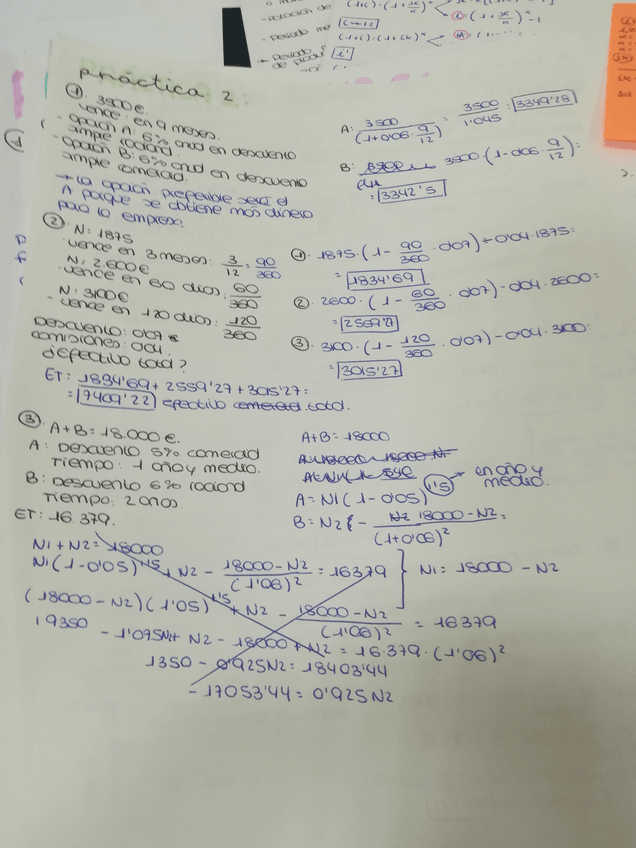 práctica 2:
① 3500€.
vence: en 9 meses.
- opción A: 6% anual en descuento
simple racional.
- opción B: 6% anual en descuento
simple comercial
→ la opción preferible será el
A porque se obtiene más dinero
para la empresa.
A: 3500 / (1+0'06 · 9/12) = 3500 / 1'045 = 3349'28
B: 3500 · (1-0'06 · 9/12):
= 3342'5
② N: 1875
vence en 3 meses: 3/12 = 90/360
N: 2.600€
- vence en 60 días: 60/360
N: 3100€
- vence en 120 días: 120/360
Descuento: 0'07
comisiones: 0'04.
¿efectivo total?
① 1875 · (1 - 90/360 · 0'07) - 0'04 · 1875:
= 1834'69
② 2600 · (1 - 60/360 · 0'07) - 0'04 · 2600:
= 2559'27
③ 3100 · (1 - 120/360 · 0'07) - 0'04 · 3100:
= 3015'27
ET: 1834'69 + 2559'27 + 3015'27 =
= 7409'22 efectivo comercial total.
③ A+B = 18.000 €.
A: Descuento 5% comercial
Tiempo: 1 año y medio.
B: Descuento 6% racional
Tiempo: 2 años
ET: 16.379.
A+B = 18000
A = N1 (1 - 0'05)^1'5 → en año y medio.
B = N2 - 18000 - N2 / (1+0'06)^2 =
N1 + N2 = 18000
N1 (1-0'05)^1'5 + N2 - 18000 - N2 / (1'06)^2 = 16379 } N1 = 18000 - N2
(18000 - N2)(1'05)^1'5 + N2 - 18000 - N2 / (1'06)^2 = 16379
19350 - 1'075N2 + N2 - 18000 + N2 = 16.379 · (1'06)^2
1350 - 0'925N2 = 18403'44
- 17053'44 = 0'925N2